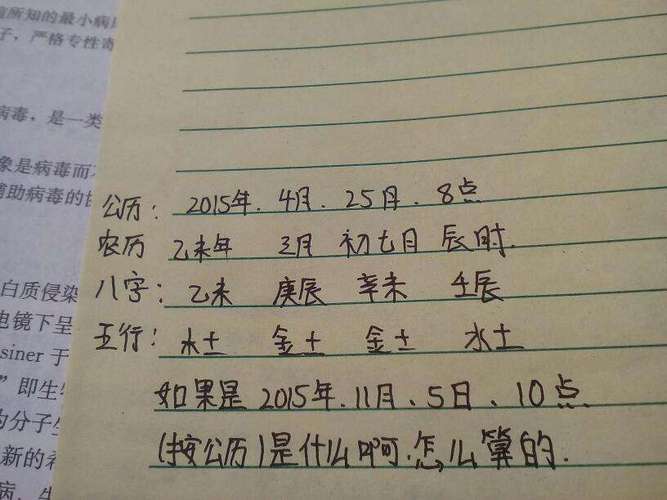 所知的最小病
子,严格专性寄
病毒,是一类
象是病毒而
辅助病毒的
白质侵染
电镜下呈
siner 于
”即生
为分子
新的
病、
公历: 2015年. 4月. 25日. 8点
农历 乙未年 三月 初七日 辰时.
八字: 乙未 庚辰 辛未 壬辰
五行: 水土 金土 金土 水土
如果是2015年.11月、5日、10点
(按公历)是什么啊.怎么算的.